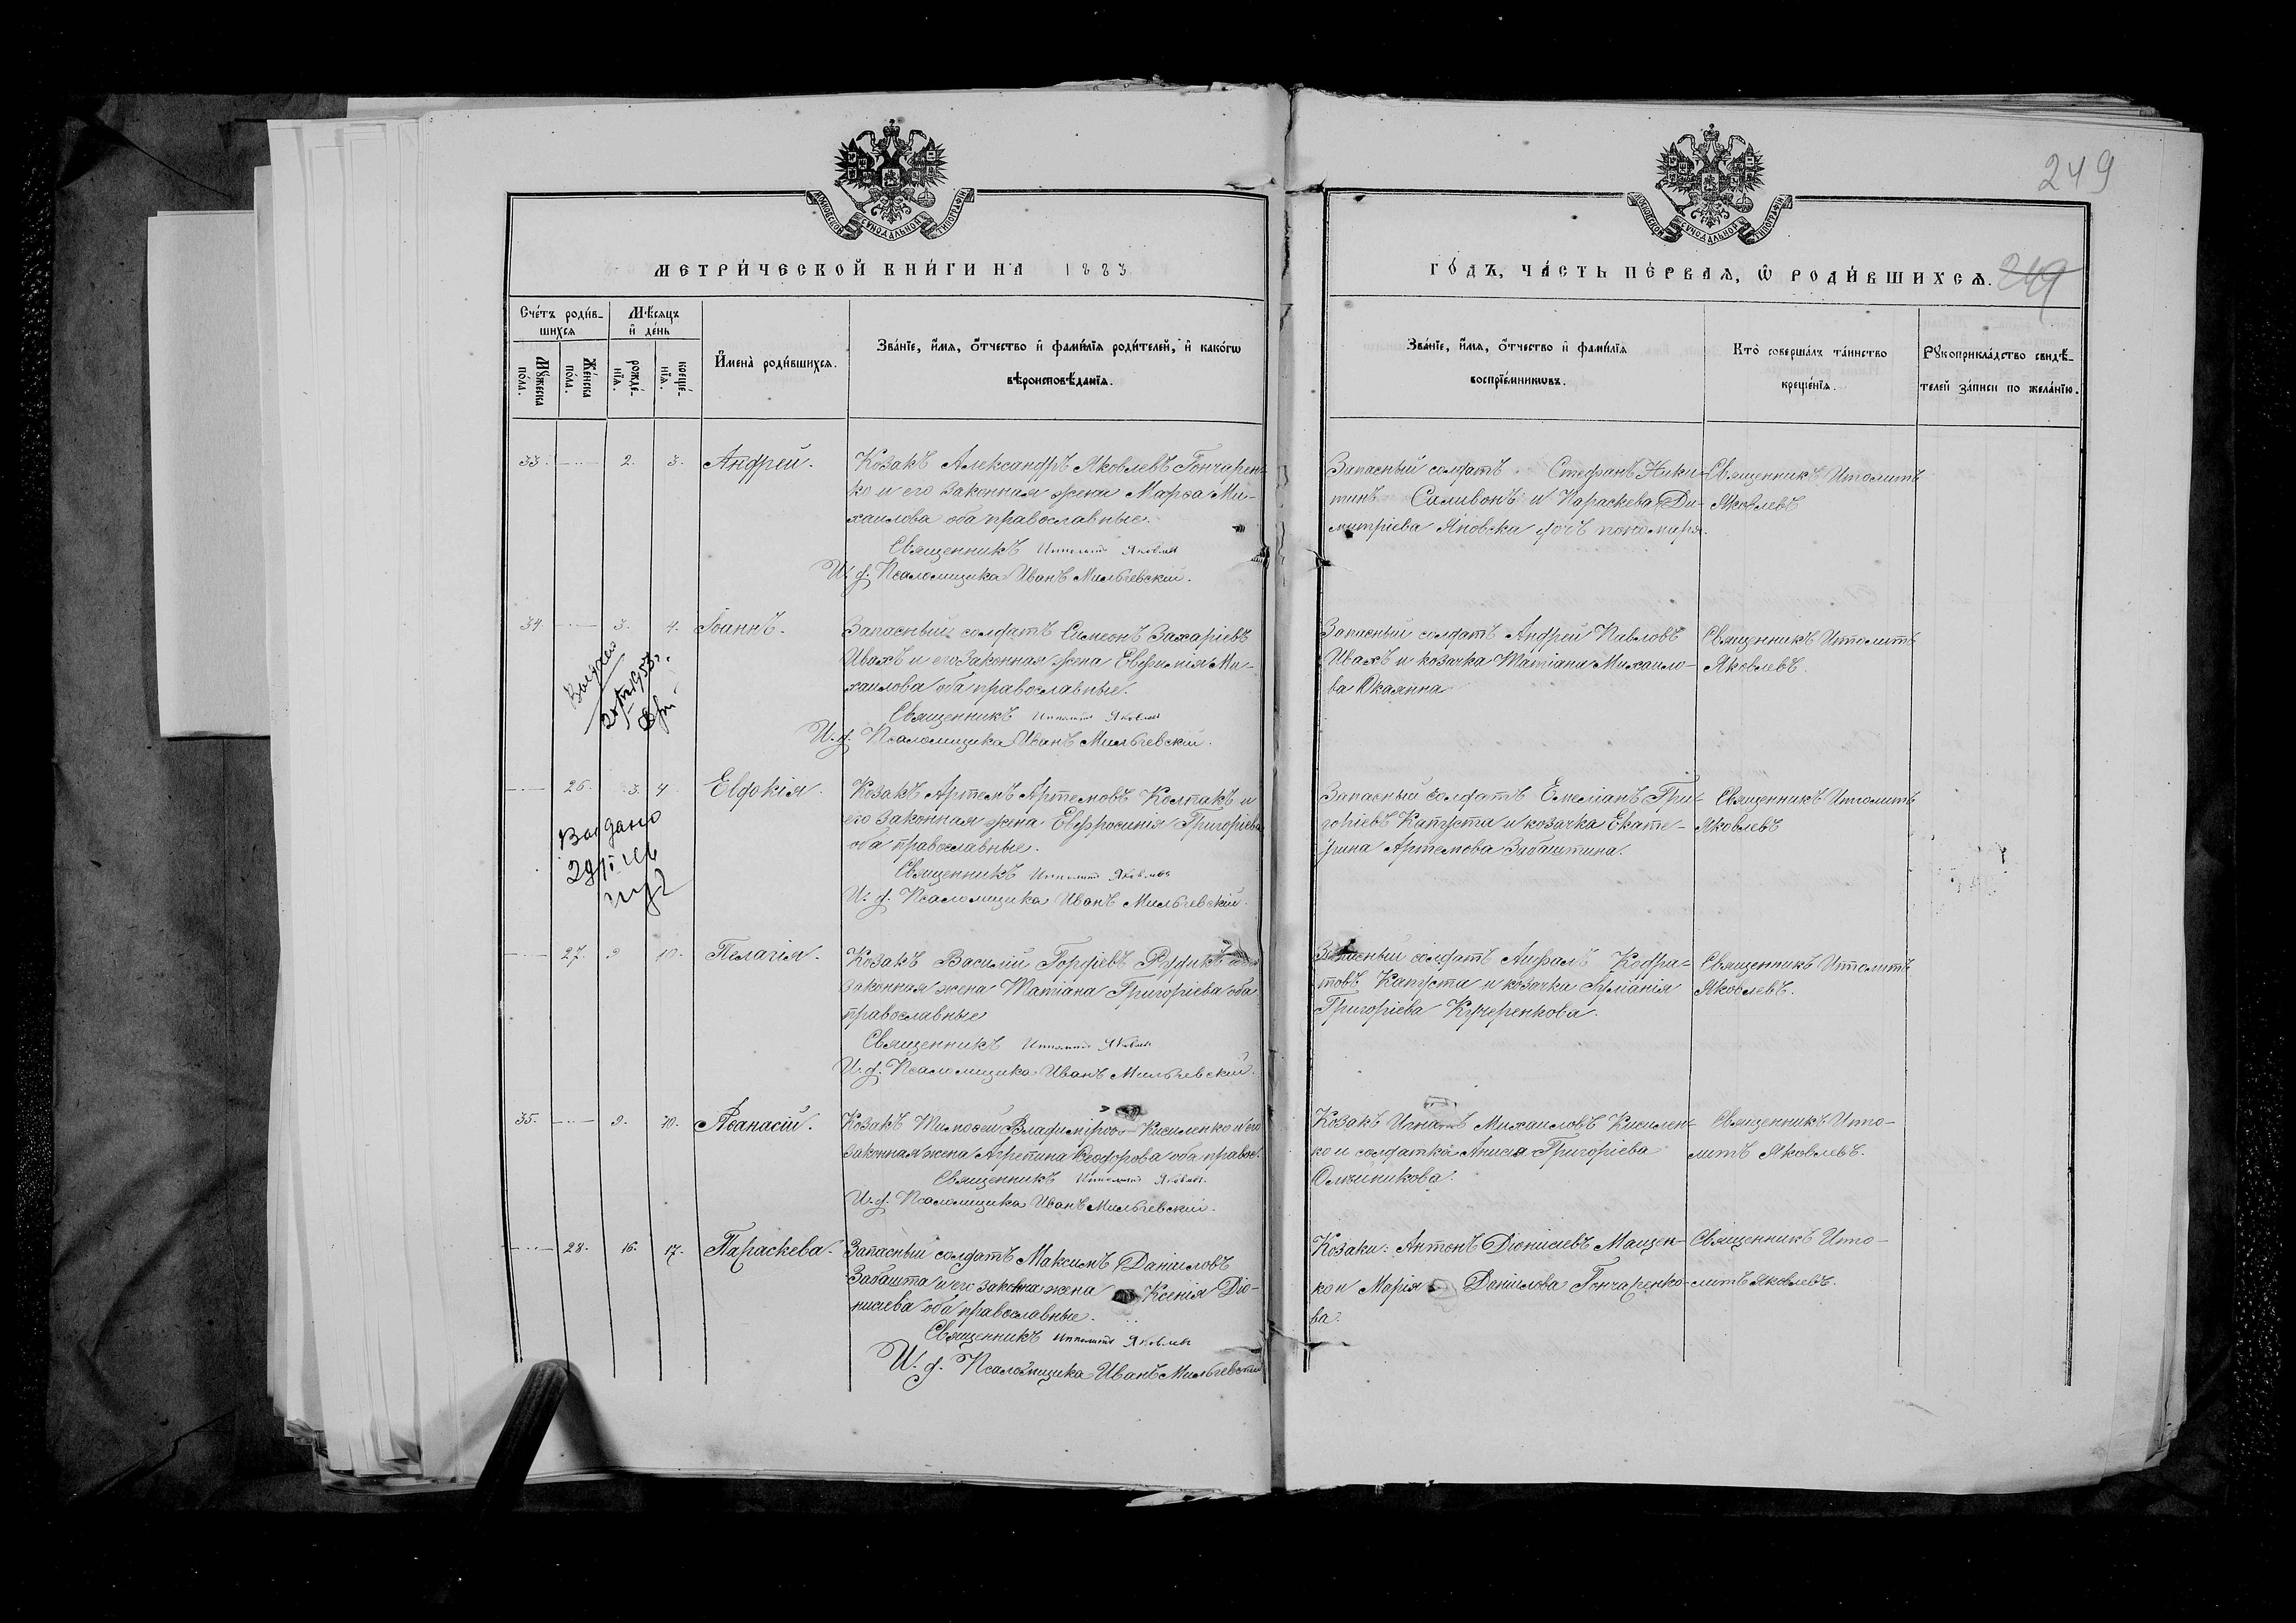 249
МОСКОВСКОЙ СѴНОДАЛЬНОЙ ТИПОГРАФІИ
МОСКОВСКОЙ СѴНОДАЛЬНОЙ ТИПОГРАФІИ
МЕТРИ́ЧЕСКОЙ КНИ́ГИ НА 1883
ГО́ДЪ, ЧА́СТЬ ПЕ́РВАЯ, Ѡ РОДИ́ВШИХСЯ. 249
Сче́тъ роди́в-
шихся
Мѣ́сяцъ
и҆ де́нь
Мꙋ́жеска
по́ла.
Же́нска
по́ла.
рожде́-
нїѧ.
креще́-
нїѧ.
И҆мена̀ роди́вшихся.
Зва́нїе, и҆́мѧ, ѻ҆́тчество и҆ фами́лїѧ роди́телей, и҆ како́гѡ
вѣроисповѣ́данїѧ.
Зва́нїе, и҆́мѧ, ѻ҆́тчество и҆ фами́лїѧ
воспрїе́мникѡвъ.
Кто̀ соверша́лъ та́инство
креще́нїѧ.
Рꙋкоприкла́дство свидѣ́-
телей за́писи по жела́нїю.
33. 2. 3. Андрей.
Козакъ Александръ Яковлевъ Гончарен-
ко и его законная жена Марѳа Ми-
хаилова оба православные.
Священникъ Ипполитъ Яковлевъ
И. д. Псаломщика Иванъ Мильчевскій.
Запасный солдатъ Стефанъ Ники-
тинъ Саливонъ и Параскева Ди-
митріева Яновска дочь пономаря.
Священникъ Иполитъ
Яковлевъ
34. 3. 4. Іоаннъ.
Запасный солдатъ Симеонъ Захаріевъ
Ивахъ и его законная жена Евфимія Ми-
хаилова оба православные.
Священникъ Ипполитъ Яковлевъ
И. д. Псаломщика Иванъ Мильчевскій.
Запасный солдатъ Андрей Павловъ
Ивахъ и козачка Татіана Михаило-
ва Окаянна
Священникъ Иполитъ
Яковлевъ.
26. 3. 4 Евдокія.
Выдано
Козакъ Артемъ Артемовъ Колпакъ и
его законная жена Евфросинія Григоріева
оба православные.
Священникъ Ипполитъ Яковлевъ
И. д. Псаломщика Иванъ Мильчевскій.
Запасный солдатъ Емеліанъ Гри-
горіевъ Капуста и козачка Екате-
рина Артемова Забаштина.
Священникъ Иполитъ
Яковлевъ
27. 9 10. Пелагія.
Козакъ Василій Гордіевъ Рудикъ и его
законная жена Татіана Григоріева оба
православные
Священникъ Ипполитъ Яковлевъ
И. д. Псаломщика Иванъ Мильчевскій.
Запасный солдатъ Кодра-
товъ Капуста и козачка Іуліанія
Григоріева Кучеренкова.
Священникъ Иполитъ
Яковлевъ.
35. 9. 10. Аѳанасій.
Козакъ Тимоѳей Владиміровъ Кисиленко и его
законная жена Агрепина Ѳеодорова оба правос.
Священникъ Ипполитъ Яковлевъ.
И. д. Псаломщика Иванъ Мильчевскій.
Козакъ Игнатъ Михаиловъ Кисилен-
ко и солдатка Анисія Григоріева
Олейникова.
Священникъ Ипо-
литъ Яковлевъ.
28. 16. 17. Параскева.
Запасный солдатъ Максимъ Даніиловъ
Забашта и его законна жена Ксенія Діо-
нисіева оба православные.
Священникъ Ипполитъ Яковлевъ
И. д. Псаломщика Иванъ Мильчевскій
Козаки: Антонъ Діонисіевъ Мацен-
ко и Марія Даніилова Гончаренко-
ва.
Священникъ Ипо-
литъ Яковлевъ.